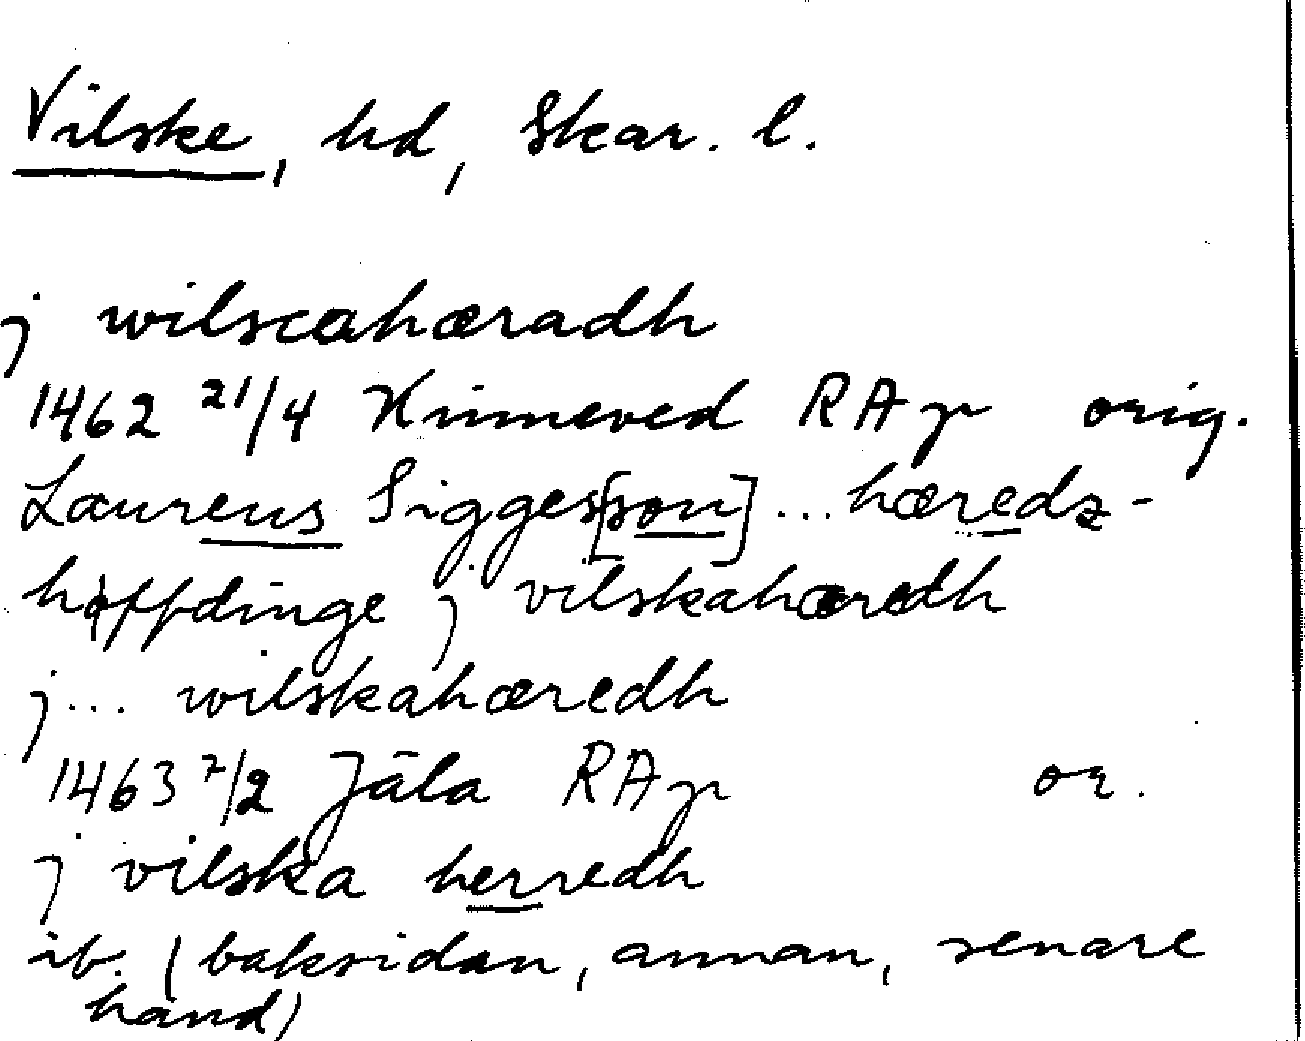 Vilske, hd, Skar. l.
j wilscahæradh
1462 21/4 Kinneved RAp orig.
Laurens Sigges[son] ... hæredz-
høffdinge j vilskahæredh
j ... wilskahæredh
1463 7/2 Jäla RAp or.
j vilska herredh
ib. (baksidan, annan, senare
hand)